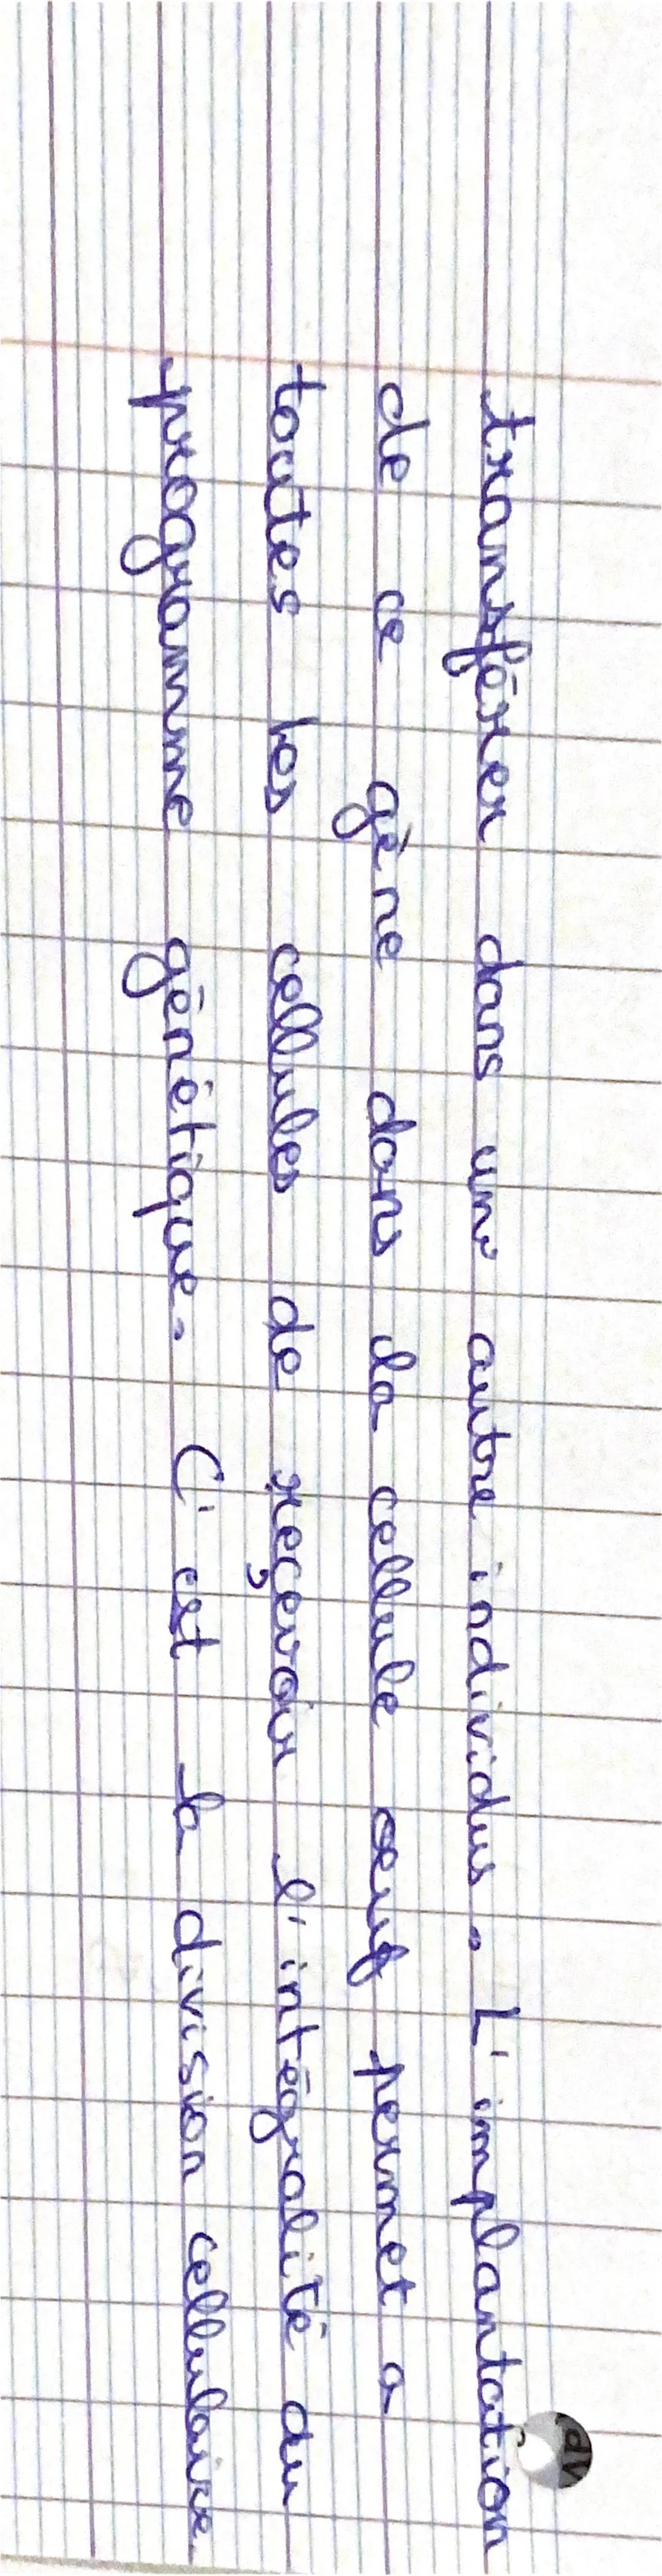 transférer dans un autre individus. L'implantation
de ce gène dans la cellule œuf permet a
toutes les cellules de reçevoir l'intégralité du
programme génétique. C'est la division cellulaire.